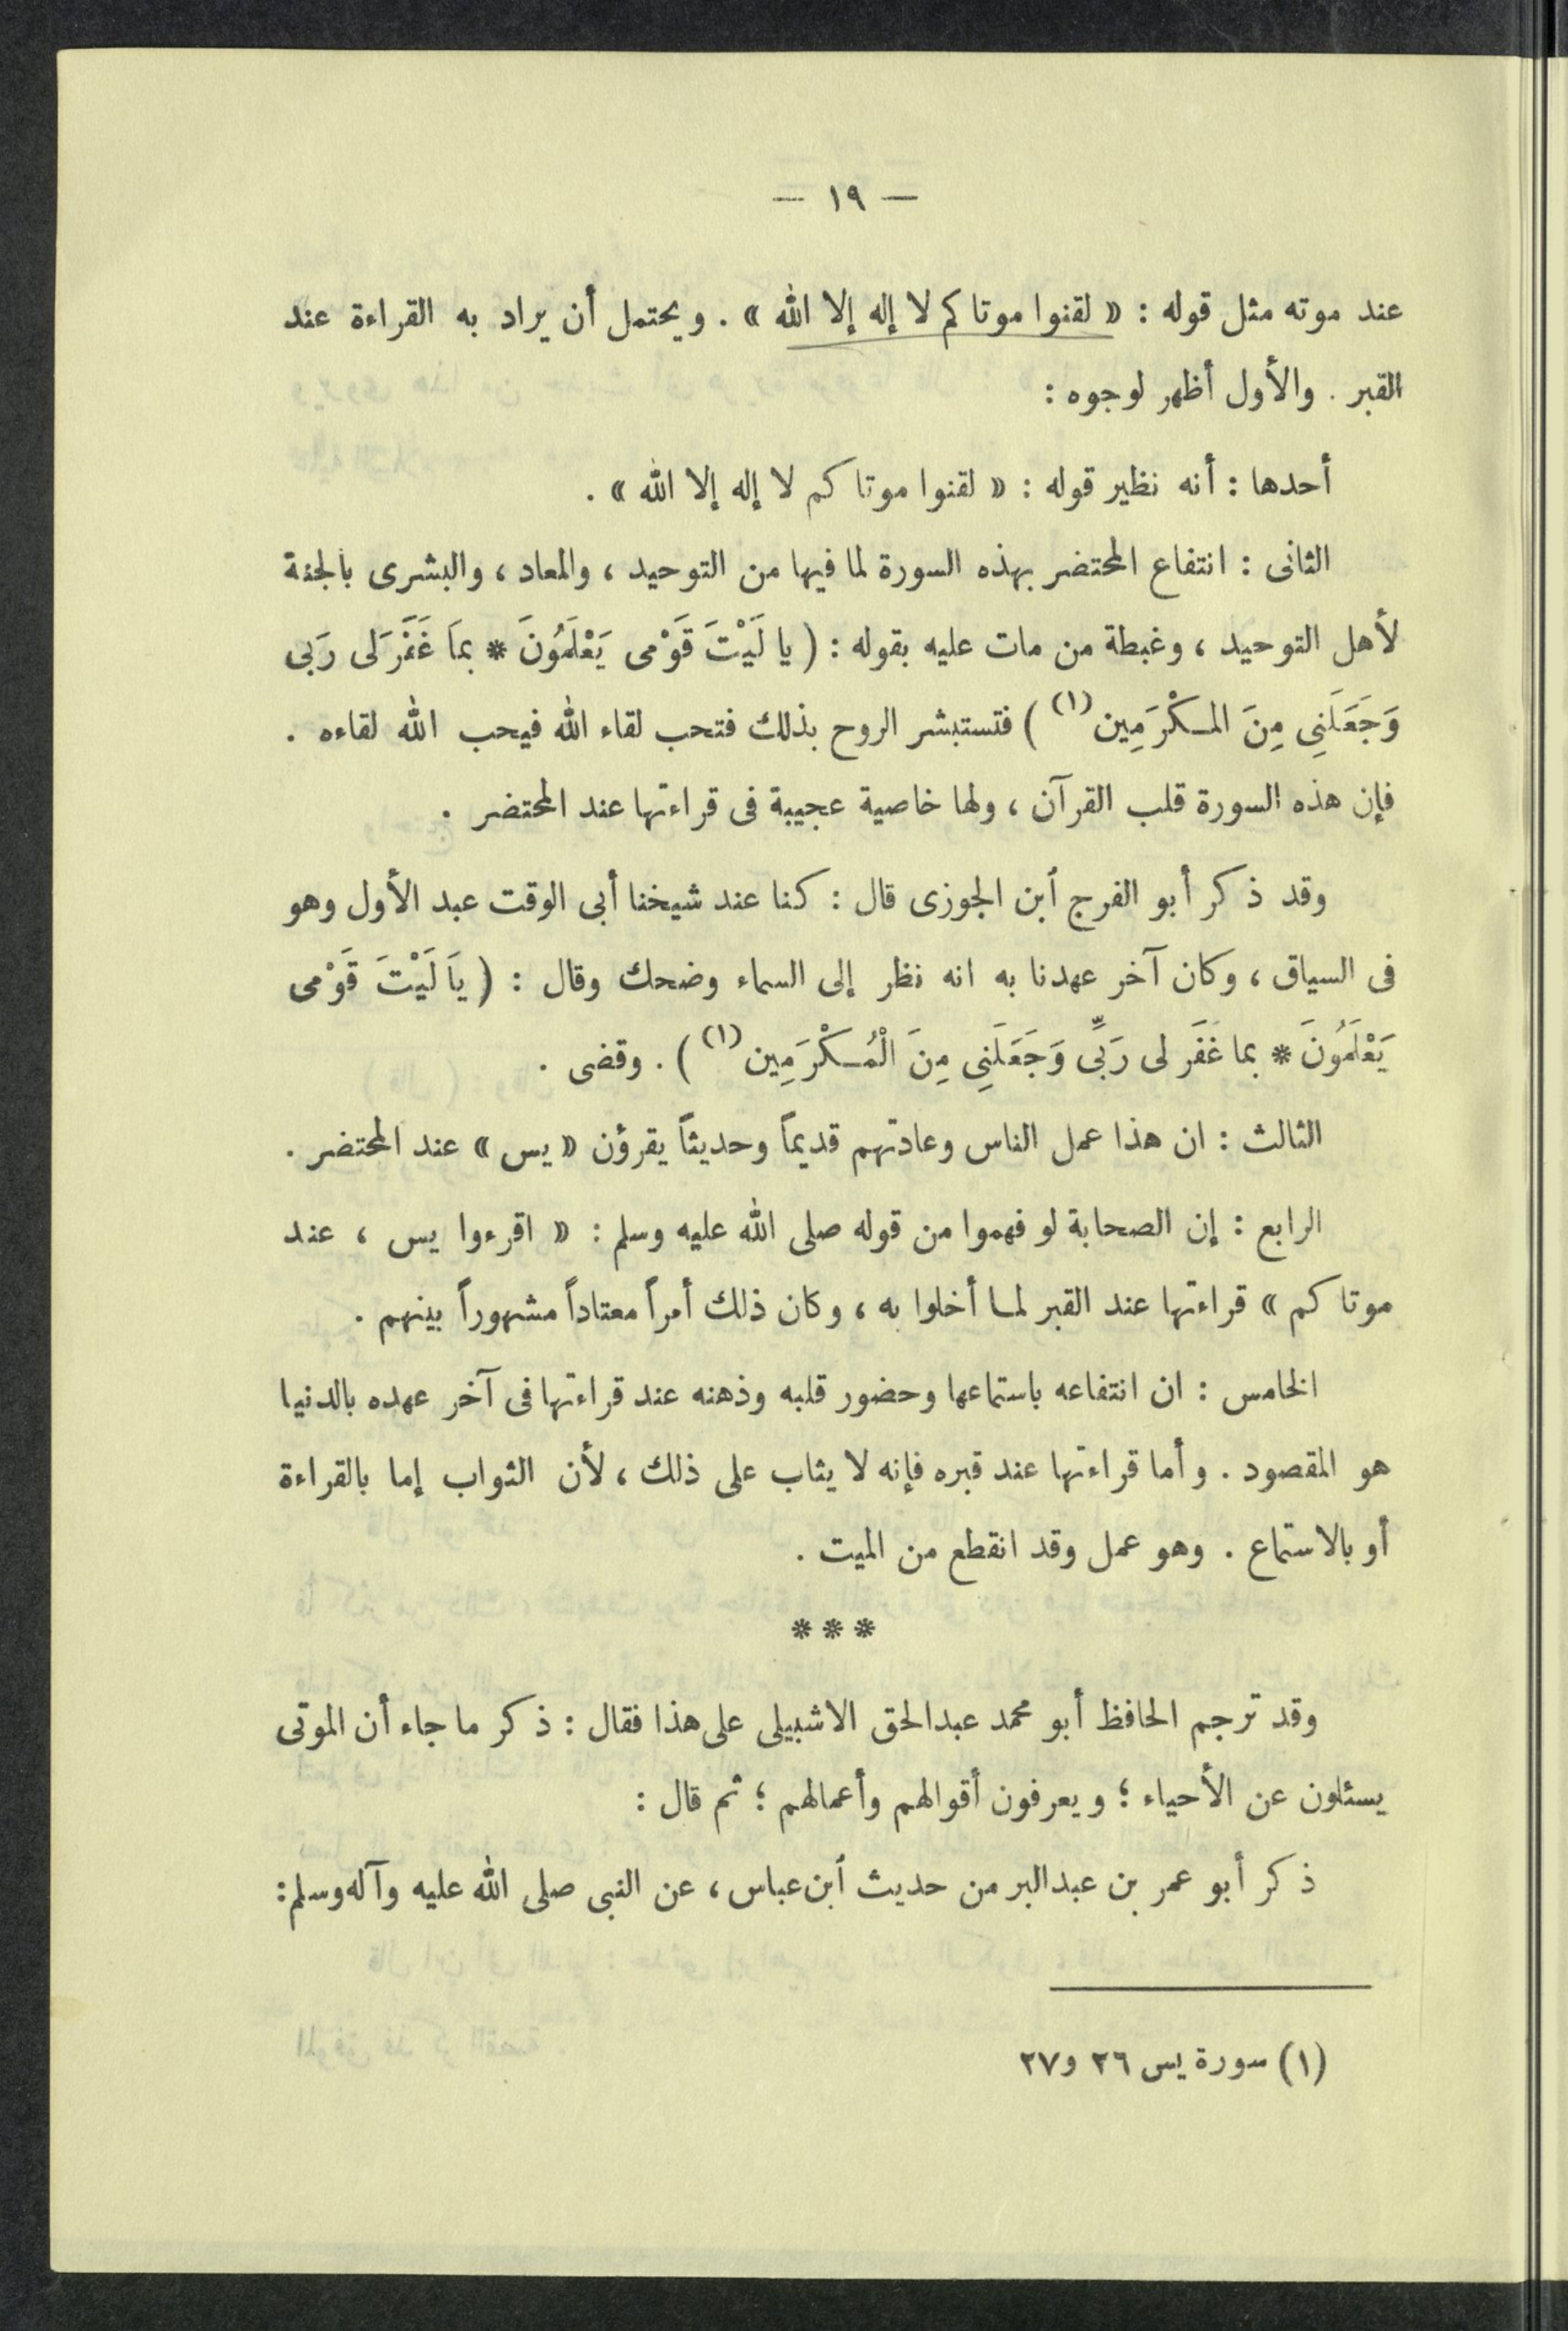 — ١٩ —
عند موته مثل قوله : « لقنوا موتاكم لا إله إلا الله » . ويحتمل أن يراد به القراءة عند
القبر . والأول أظهر لوجوه :
أحدها : أنه نظير قوله : « لقنوا موتاكم لا إله إلا الله » .
الثانى : انتفاع المحتضر بهذه السورة لما فيها من التوحيد ، والمعاد ، والبشرى بالجنة
لأهل التوحيد ، وغبطة من مات عليه بقوله : ( يا لَيْتَ قَوْمى يَعْلَمُونَ * بمَا غَفَرَ لى رَبى
وَجَعَلَنِى مِنَ المكْرَمِين (١) ) فتستبشر الروح بذلك فتحب لقاء الله فيحب الله لقاءه .
فإن هذه السورة قلب القرآن ، ولها خاصية عجيبة فى قراءتها عند المحتضر .
وقد ذكر أبو الفرج أبن الجوزى قال : كنا عند شيخنا أبى الوقت عبد الأول وهو
فى السياق ، وكان آخر عهدنا به انه نظر إلى السماء وضحك وقال : ( يَا لَيْتَ قَوْمى
يَعْلَمُونَ * بما غَفَر لى رَبِّى وَجَعَلَنِى مِنَ الْمُكْرَمِين (١) ) . وقضى .
الثالث : ان هذا عمل الناس وعادتهم قديماً وحديثاً يقرؤن « يس » عند المحتضر .
الرابع : إن الصحابة لو فهموا من قوله صلى الله عليه وسلم : « اقرءوا يس ، عند
موتاكم » قراءتها عند القبر لما أخلوا به ، وكان ذلك أمراً معتاداً مشهوراً بينهم .
الخامس : ان انتفاعه باستماعها وحضور قلبه وذهنه عند قراءتها فى آخر عهده بالدنيا
هو المقصود . وأما قراءتها عند قبره فإنه لا يثاب على ذلك ، لأن الثواب إما بالقراءة
أو بالاستماع . وهو عمل وقد انقطع من الميت .
* * *
وقد ترجم الحافظ أبو محمد عبدالحق الاشبيلى على هذا فقال : ذكر ما جاء أن الموتى
يسئلون عن الأحياء ؛ ويعرفون أقوالهم وأعمالهم ؛ ثم قال :
ذكر أبو عمر بن عبدالبر من حديث أبن عباس ، عن النبى صلى الله عليه وآله وسلم :
(١) سورة يس ٢٦ و٢٧